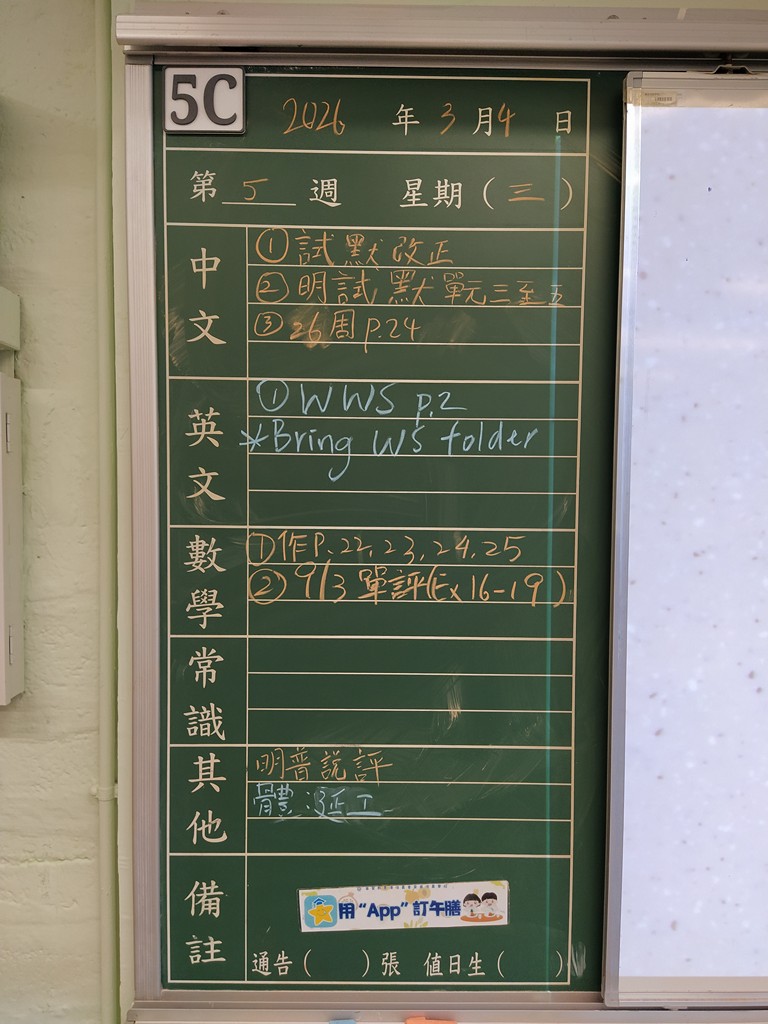 5C
2026 年 3 月 4 日
第 5 週 星期（三）
中文
①試默改正
②明試默單元三至五
③26周 p.24
英文
①WWS p.2
*Bring WS folder
數學
①作P.22,23,24,25
②9/3 單評(Ex 16-19)
常識
其他
明普說評
體：
備註
用“App”訂午膳
通告（ ）張 值日生（ ）